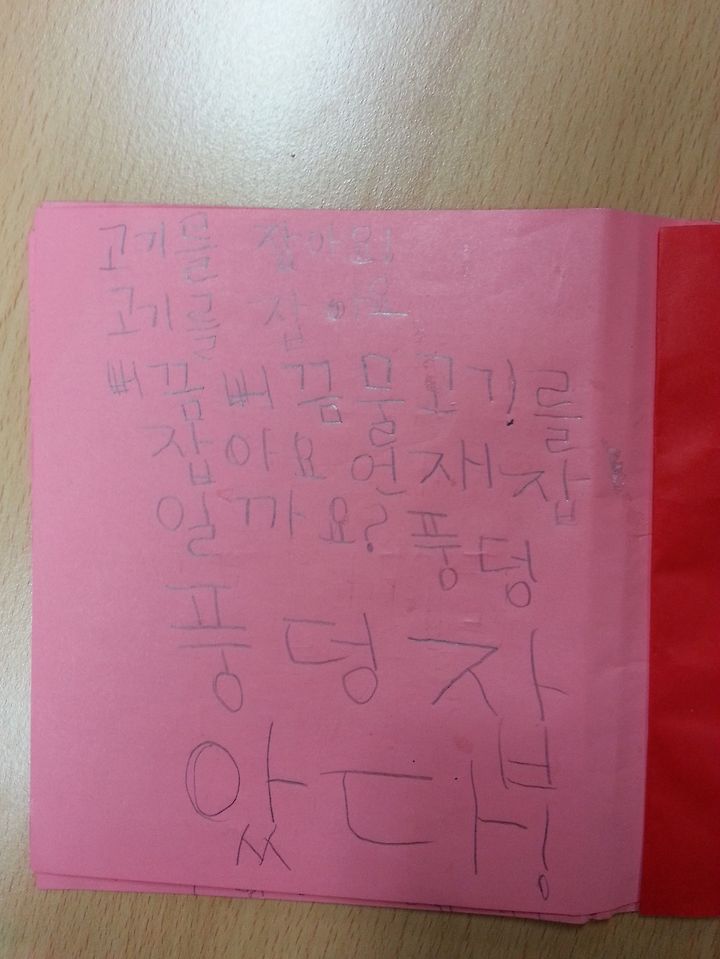 고기를 잡아요!
고기를 잡아요
뻐끔 뻐끔 물고기를
잡아요 언재 잡
일까요? 풍덩
풍덩 잡
았다!